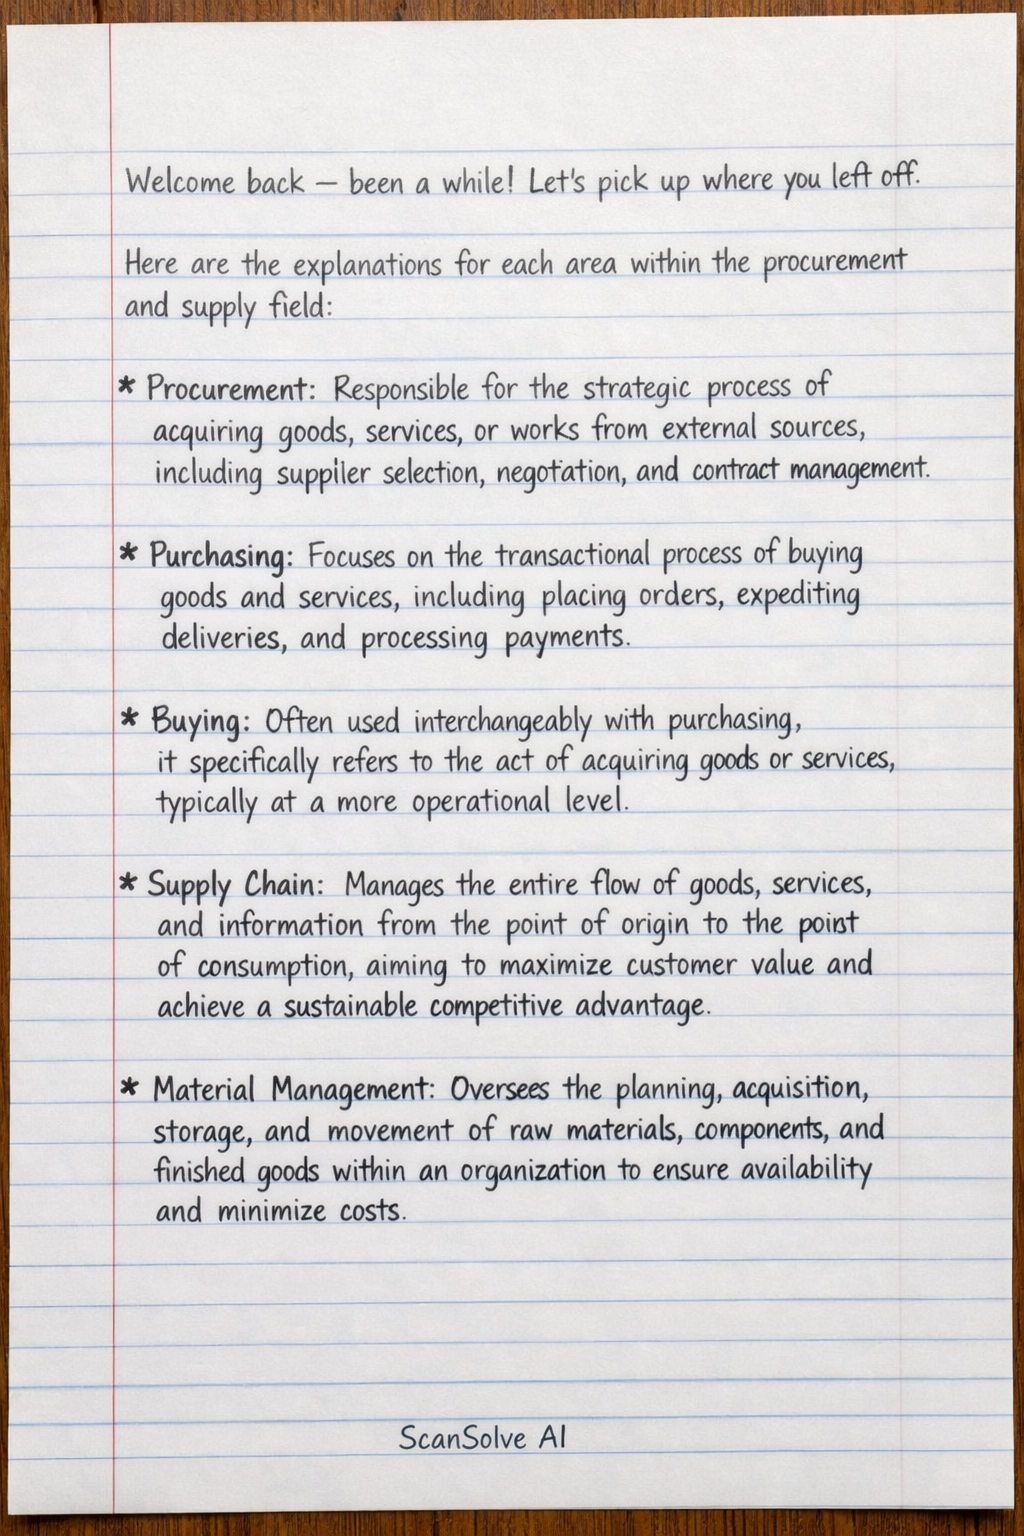 Welcome back — been a while! Let's pick up where you left off.
Here are the explanations for each area within the procurement
and supply field:
* Procurement: Responsible for the strategic process of
acquiring goods, services, or works from external sources,
including supplier selection, negotation, and contract management.
* Purchasing: Focuses on the transactional process of buying
goods and services, including placing orders, expediting
deliveries, and processing payments.
* Buying: Often used interchangeably with purchasing,
it specifically refers to the act of acquiring goods or services,
typically at a more operational level.
* Supply Chain: Manages the entire flow of goods, services,
and information from the point of origin to the point
of consumption, aiming to maximize customer value and
achieve a sustainable competitive advantage.
* Material Management: Oversees the planning, acquisition,
storage, and movement of raw materials, components, and
finished goods within an organization to ensure availability
and minimize costs.
ScanSolve AI